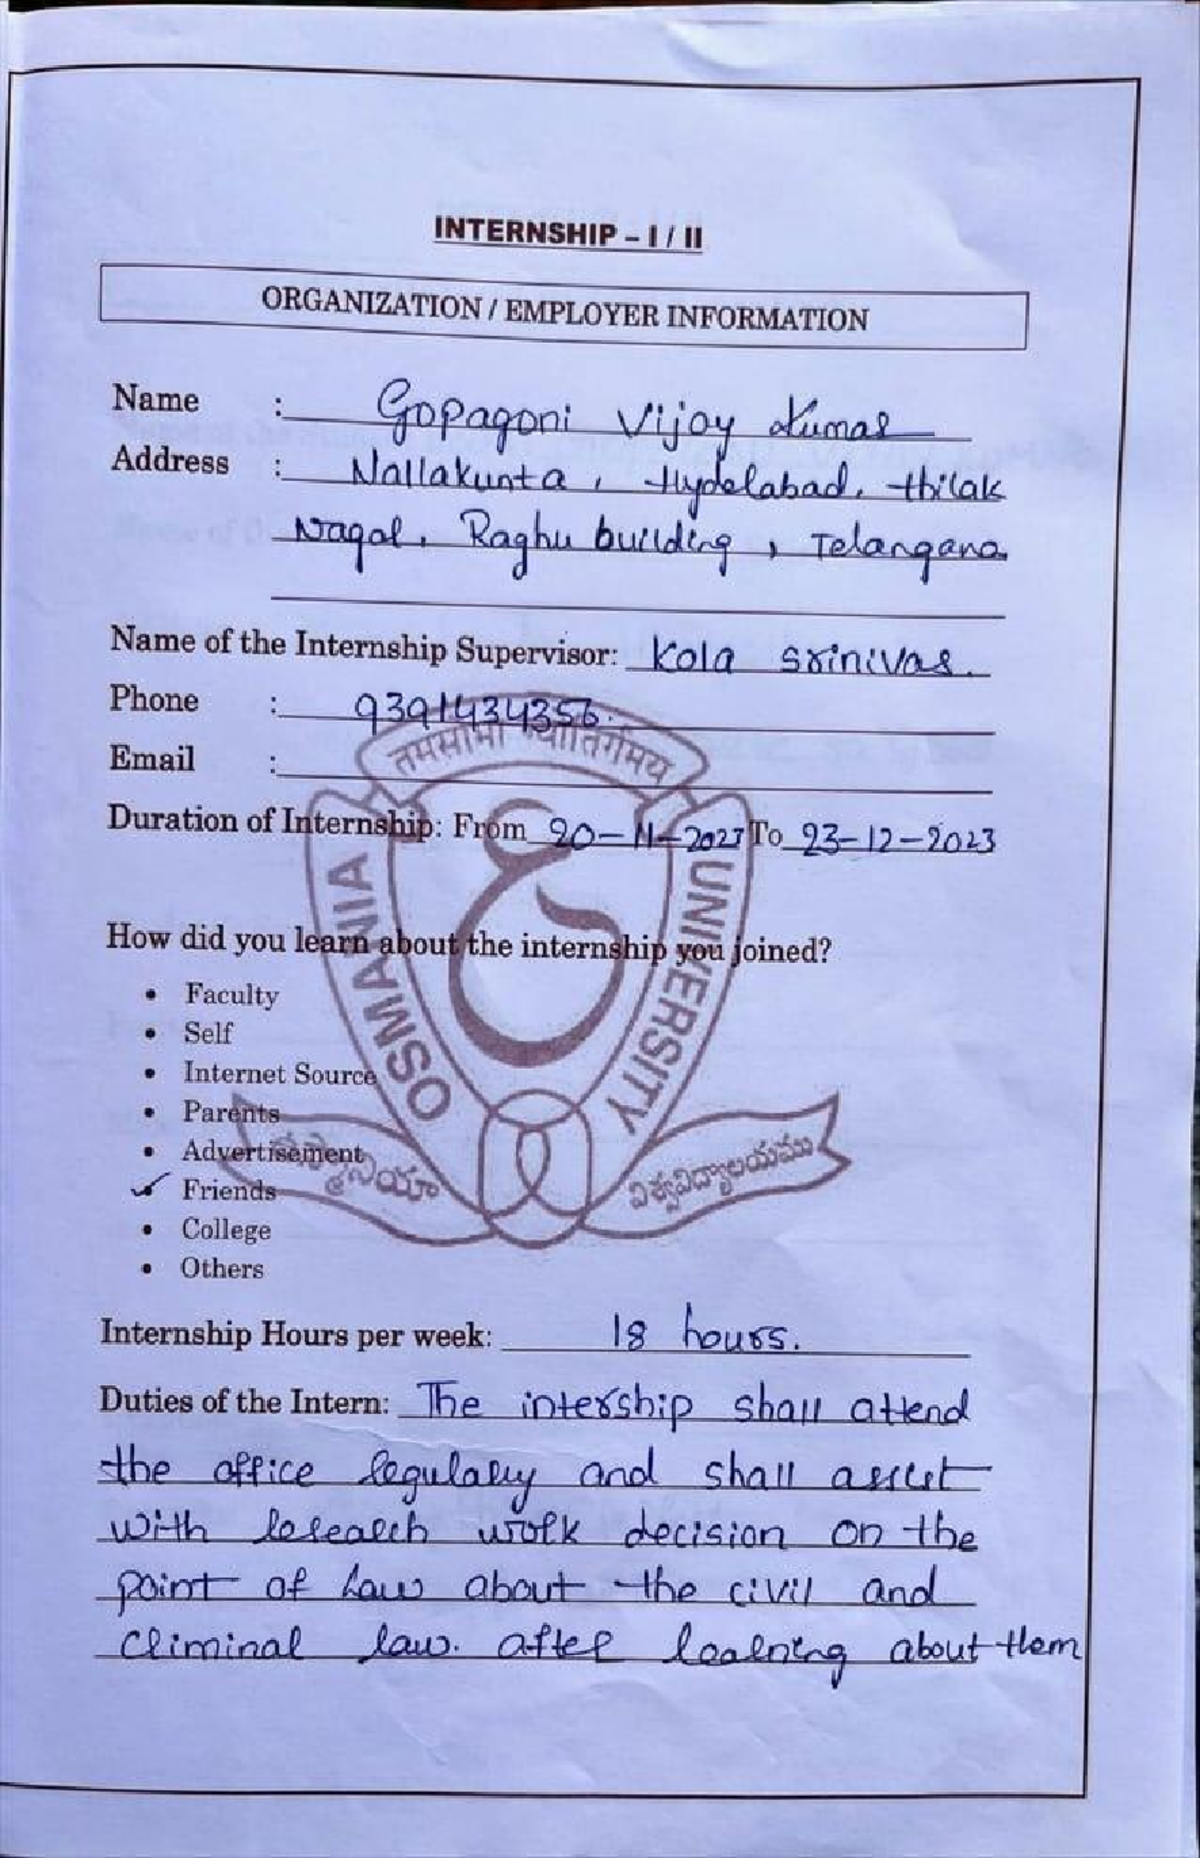 INTERNSHIP – I / II
ORGANIZATION / EMPLOYER INFORMATION
Name : Gopagoni Vijay Kumar
Address : Nallakunta, Hyderabad, thilak
Nagar, Raghu building, Telangana
Name of the Internship Supervisor: Kola srinivas.
Phone : 9391434356.
Email :
तमसोमा ज्योतिर्गमय
Duration of Internship: From 20-11-2023 To 23-12-2023
OSMANIA UNIVERSITY
How did you learn about the internship you joined?
• Faculty
• Self
• Internet Source
• Parents
• Advertisement
✓ Friends
• College
• Others
విశ్వవిద్యాలయము
Internship Hours per week: 18 hours.
Duties of the Intern: The intership shall attend
the office regularly and shall assist
with research work decision on the
point of Law about the civil and
criminal law. after learning about them